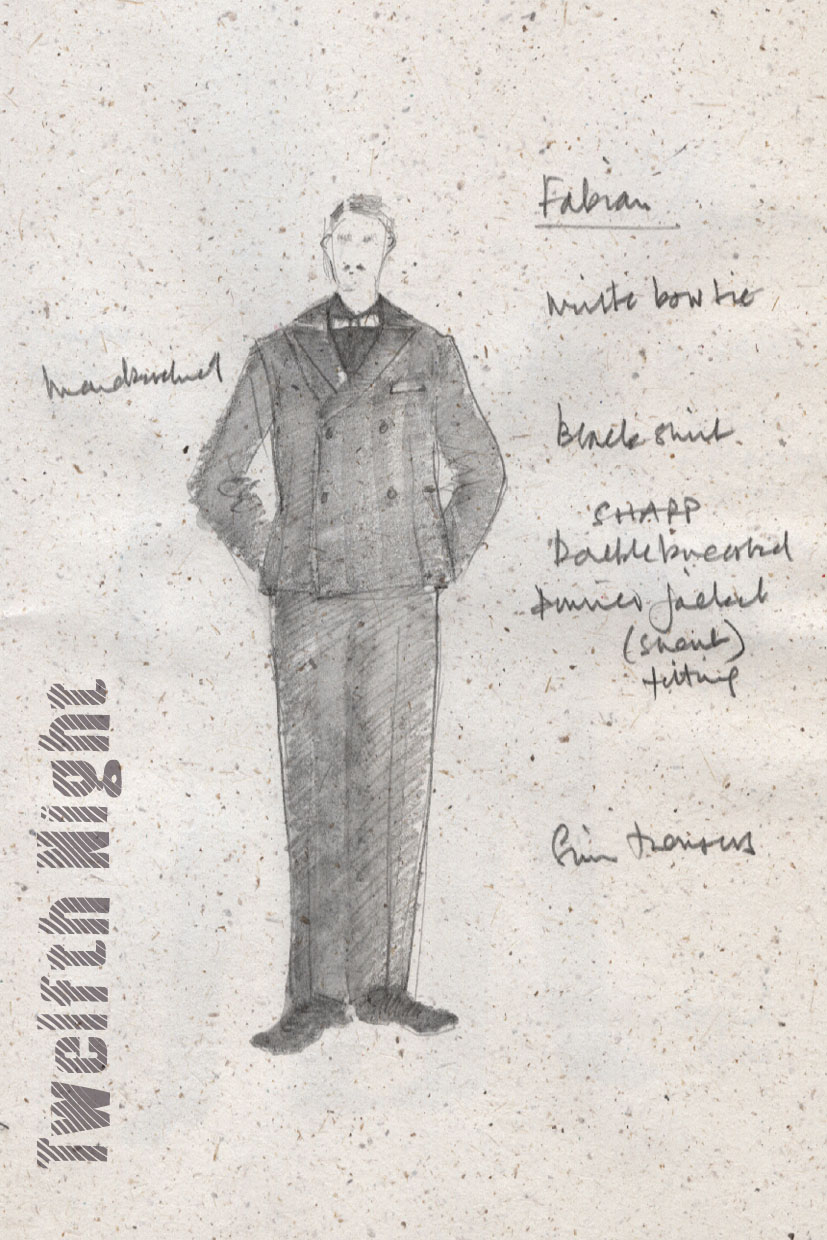 Fabian
white bow tie
handkerchief
Black shirt.
SHARP
Double breasted
dinner jacket
(short)
fitting
Slim trousers
Twelfth Night